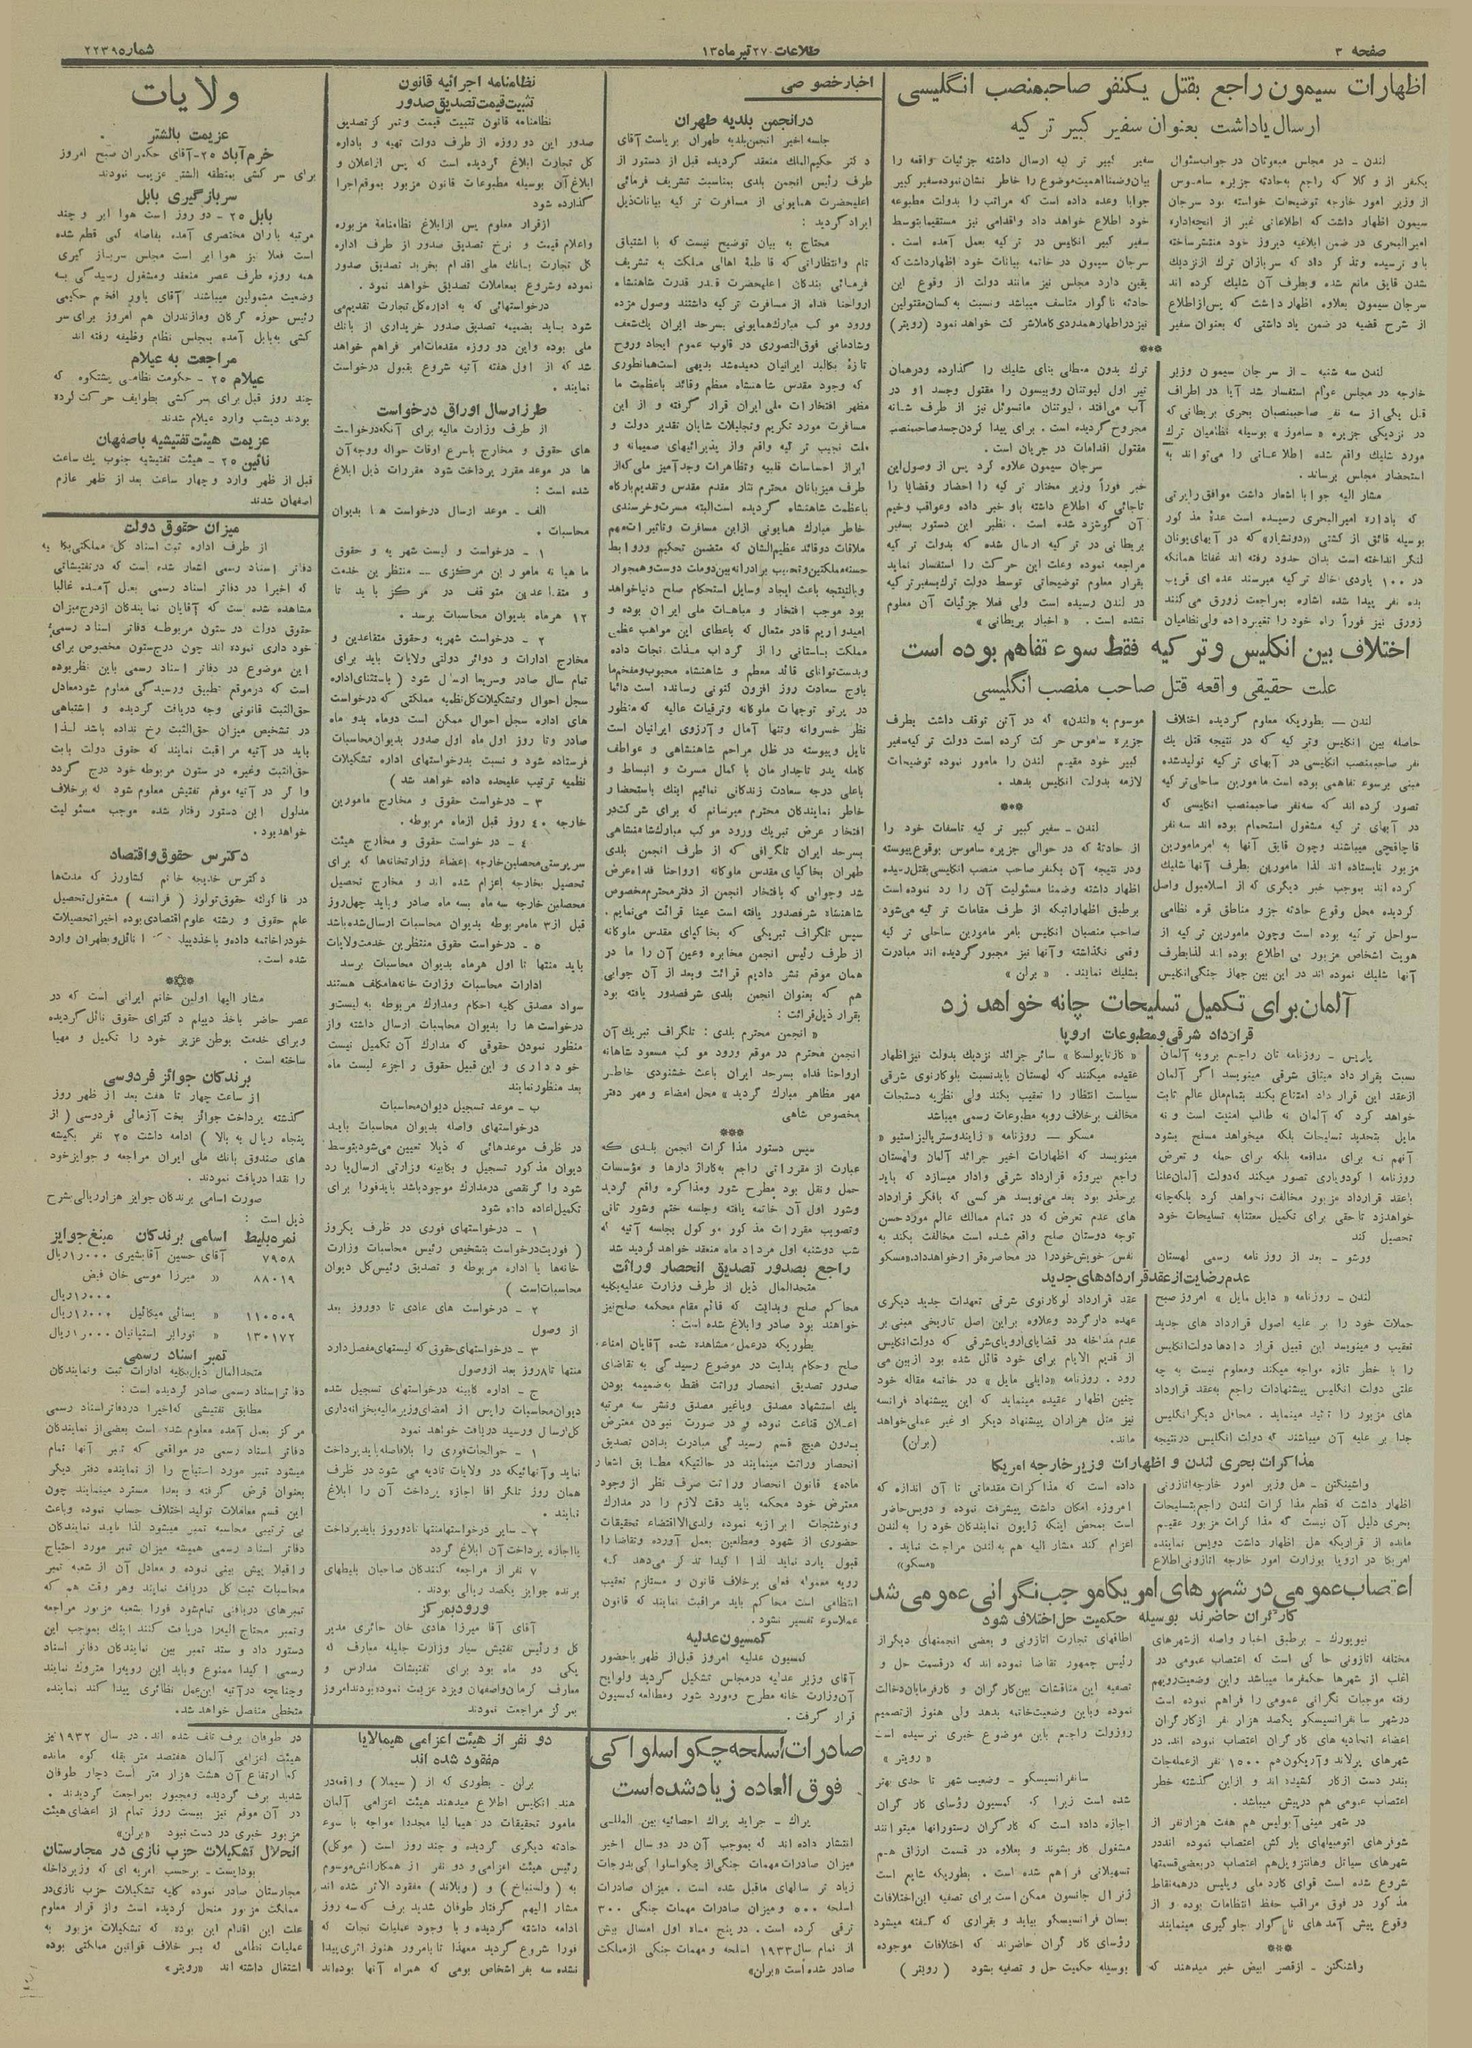 صفحه ۳
طلاعات ۲۷ تیر ماه ۱۳
شماره ۲۲۳۹
اظهارات سیمون راجع بقتل یکنفر صاحبمنصب انگلیسی
ارسال یاداشت بعنوان سفیر کبیر ترکیه
لندن - در مجلس مبعوثان در جواب سئوال
یکنفر از وکلا که راجع بحادثه جزیره ساموس
از وزیر امور خارجه توضیحات خواسته بود سرجان
سیمون اظهار داشت که اطلاعاتی غیر از آنچه اداره
امیرالبحری در ضمن ابلاغیه دیروز خود منتشر ساخته
باو نرسیده وتذکر داد که سربازان ترک از نزدیك
شدن قایق مانع شده وبطرف آن شلیك کرده اند
سرجان سیمون بعلاوه اظهار داشت که پس از اطلاع
از شرح قضیه در ضمن یاد داشتی که بعنوان سفیر
سفیر کبیر ترکیه ارسال داشته جزئیات واقعه را
بیان وضمنا اهمیت موضوع را خاطر نشان نموده سفیر کبیر
جوابا وعده داده است که مراتب را بدولت مطبوعه
خود اطلاع خواهد داد واقدامی نیز مستقیما بتوسط
سفیر کبیر انگلیس در ترکیه بعمل آمده است .
سرجان سیمون در خاتمه بیانات خود اظهار داشت که
یقین دارد مجلس نیز مانند دولت از وقوع این
حادثه ناگوار متاسف میباشد ونسبت به کسان مقتولین
نیز در اظهار همدردی کاملا شرکت خواهد نمود (رویتر)
***
لندن سه شنبه - از سرجان سیمون وزیر
خارجه در مجلس عوام استفسار شد آیا در اطراف
قتل یکی از سه نفر صاحبمنصبان بحری بریطانی که
در نزدیکی جزیره « ساموز » بوسیله نظامیان ترك
مورد شلیك واقع شده اطلاعاتی را می تواند به
استحضار مجلس برساند .
مشار الیه جوابا اشعار داشت موافق راپرتی
که باداره امیرالبحری رسیده است عدهٔ مذکور
بوسیله قائق از کشتی «دونشایر» که در آبهای یونان
لنگر انداخته است بدان حدود رفته اند غفلتا همانکه
در ۱۰۰ یاردی خاك ترکیه میرسند عده ای قریب
بده نفر پیدا شده اشاره بمراجعت زورق می کنند
زورق نیز فورآ راه خود را تغییر داده ولی نظامیان
ترك بدون معطلی بنای شلیك را گذارده ودرهمان
تیر اول لیوتنان روبیسون را مقتول وجسد او در
آب می افتد . لیوتنان مانسوئل نیز از طرف شانه
مجروح گردیده است . برای پیدا کردن جسد صاحبمنصب
مقتول اقدامات در جریان است .
سرجان سیمون علاوه کرد پس از وصول این
خبر فورآ وزیر مختار ترکیه را احضار وقضایا را
تاجائی که اطلاع داشته باو خبر داده وعواقب وخیم
آن گوشزد شده است . نظیر این دستور بسفیر
بریطانی در ترکیه ارسال شده که بدولت ترکیه
مراجعه نموده وعلت این حرکت را استفسار نماید
بقرار معلوم توضیحاتی توسط دولت ترك بسفیر ترکیه
در لندن رسیده است ولی فعلا جزئیات آن معلوم
نشده است . « اخبار بریطانی »
اختلاف بین انگلیس و ترکیه فقط سوء تفاهم بوده است
علت حقیقی واقعه قتل صاحب منصب انگلیسی
لندن — بطوریکه معلوم گردیده اختلاف
حاصله بین انگلیس وترکیه که در نتیجه قتل یك
نفر صاحبمنصب انگلیسی در آبهای ترکیه تولید شده
مبنی برسوء تفاهمی بوده است مامورین ساحلی ترکیه
تصور کرده اند که سه نفر صاحبمنصب انگلیسی که
در آبهای ترکیه مشغول استحمام بوده اند سه نفر
قاچاقچی میباشند وچون قایق آنها به امر مامورین
مزبور نایستاده اند لذا مامورین بطرف آنها شلیك
کرده اند بموجب خبر دیگری که از اسلامبول واصل
گردیده محل وقوع حادثه جزو مناطق قره نظامی
سواحل ترکیه بوده است وچون مامورین ترکیه از
هویت اشخاص مزبور بی اطلاع بوده اند لذا بطرف
آنها شلیك نموده اند در این بین جهاز جنگی انگلیس
موسوم به «لندن» که در آتن توقف داشت بطرف
جزیره ساموس حرکت کرده است دولت ترکیه سفیر
کبیر خود مقیم لندن را مامور نموده توضیحات
لازمه بدولت انگلیس بدهد .
***
لندن - سفیر کبیر ترکیه تاسفات خود را
از حادثهٔ که در حوالی جزیره ساموس بوقوع پیوسته
ودر نتیجه آن یکنفر صاحب منصب انگلیسی بقتل رسیده
اظهار داشته وضمنا مسئولیت آن را رد نموده است
برطبق اظهاراتیکه از طرف مقامات ترکیه می شود
صاحب منصبان انگلیس بامر مامورین ساحلی ترکیه
وقعی نگذاشته و آنها نیز مجبور گردیده اند مبادرت
بشلیك نمایند . « برلن »
آلمان برای تکمیل تسلیحات چانه خواهد زد
قرارداد شرقی و مطبوعات اروپا
پاریس - روزنامه تان راجع برویه آلمان
نسبت بقرار داد میثاق شرقی مینویسد اگر آلمان
از عقد این قرار داد امتناع بکند بتمام ملل عالم ثابت
خواهد کرد که آلمان نه طالب امنیت است و نه
مایل بتحدید تسلیحات بلکه میخواهد مسلح بشود
آنهم نه برای مدافعه بلکه برای حمله و تعرض
روزنامه اکودوپاری تصور میکند که دولت آلمان علنا
باعقد قرارداد مزبور مخالفت نخواهد کرد بلکه چانه
خواهدزد تا حقی برای تکمیل معتنابه تسلیحات خود
تحصیل کند
ورشو - بعد از روز نامه رسمی لهستان
« گازتاپولسکا » سائر جرائد نزدیك بدولت نیز اظهار
عقیده میکنند که لهستان باید نسبت بلوکارنوی شرقی
سیاست انتظار را تعقیب بکند ولی نظریه دستجات
مخالف برخلاف رویه مطبوعات رسمی میباشد
مسکو — روزنامه « زایندوستریالیزاستیو »
مینویسد که اظهارات اخیر جرائد آلمان ولهستان
راجع بپروژه قرارداد شرقی وادار میسازد که باید
برحذر بود بعد می نویسد هر کسی که بافکر قرارداد
های عدم تعرض که در تمام ممالك عالم مورد حسن
توجه دوستان صلح واقع شده است مخالفت بکند به
نفس خویش خود را در محاصره قرار خواهد داد. «مسکو»
عدم رضایت از عقد قراردادهای جدید
لندن - روزنامه « دایل مایل » امروز صبح
حملات خود را بر علیه اصول قرارداد های جدید
تعقیب و مینویسد این قبیل قرار دادها دولت انگلیس
را با خطر تازه مواجه میکند ومعلوم نیست به چه
علتی دولت انگلیس پیشنهادات راجع به عقد قرارداد
های مزبور را تائید مینماید . محافل دیگر انگلیس
جدا بر علیه آن میباشند که دولت انگلیس در نتیجه
عقد قرارداد لوکارنوی شرقی تعهدات جدید دیگری
عهده دار گردد وعلاوه براین اصل تاریخی مبنی بر
عدم مداخله در قضایای اروپای شرقی که دولت انگلیس
از قدیم الایام برای خود قائل شده بود از بین می
رود . روزنامه «دایلی مایل » در خاتمه مقاله خود
چنین اظهار عقیده مینماید که این پیشنهاد فرانسه
نیز مثل هزاران پیشنهاد دیگر او غیر عملی خواهد
ماند. (برلن)
مذاکرات بحری لندن و اظهارات وزیر خارجه امریکا
واشنگتن - هل وزیر امور خارجه اتازونی
اظهار داشت که قطع مذاکرات لندن راجع بتسلیحات
بحری دلیل آن نیست که مذاکرات مزبور عقیم
مانده از قراریکه هل اظهار داشت دویس نماینده
امریکا در اروپا بوزارت امور خارجه اتازونی اطلاع
داده است که مذاکرات مقدماتی تا آن اندازه که
امروزه امکان داشت پیشرفت نموده و دویس حاضر
است بمحض اینکه ژاپون نمایندگان خود را به لندن
اعزام کند مشار الیه هم به لندن مراجعت نماید .
«مسکو»
اعتصاب عمومی در شهرهای امریکا موجب نگرانی عمومی شد
کارگران حاضرند بوسیله حکمیت حل اختلاف شود
نیویورك - برطبق اخبار واصله از شهرهای
مختلفه اتازونی حاکی است که اعتصاب عمومی در
اغلب از شهرها حکمفرما میباشد واین وضعیت رویهم
رفته موجبات نگرانی عمومی را فراهم نموده است
درشهر سانفرانسیسکو یکصد هزار نفر از کارگران
اعضاء اتحادیه های کارگران اعتصاب نموده اند. در
شهرهای پرلاند و آریکون هم ۱۵۰۰ نفر از عمله جات
بندر دست از کار کشیده اند و از این گذشته خطر
اعتصاب عمومی هم درپیش میباشد .
در شهر مینی آپولیس هم هفت هزار نفر از
شوفرهای اتومبیلهای بار کش اعتصاب نموده اند در
شهرهای سیاتل وهانتزویل هم اعتصاب در بعضی قسمتها
شروع شده است قوای کارد ملی و پلیس در همه نقاط
مذکور در فوق مراقب حفظ انتظامات بوده و از
وقوع پیش آمدهای ناگوار جلو گیری مینمایند
***
واشنگتن - از قصر ابیض خبر میدهند که
اطاقهای تجارت اتازونی و بعضی انجمنهای دیگر از
رئیس جمهور تقاضا نموده اند که در قسمت حل و
تصفیه این مناقشات بین کارگران و کارفرمایان دخالت
نموده وباین وضعیت خاتمه بدهد ولی هنوز از تصمیم
روزولت راجع باین موضوع خبری نرسیده است
« رویتر »
سانفرانسیسکو - وضعیت شهر تا حدی بهتر
شده است زیرا که کمسیون رؤسای کارگران
اجازه داده است که کارگران رستورانها میتوانند
مشغول کار بشوند و بعلاوه در قسمت ارزاق هم
تسهیلاتی فراهم شده است . بطوریکه شایع است
ژنرال جانسون ممکن است برای تصفیه این اختلافات
بسان فرانسیسکو بیاید و بقراری که گفته میشود
رؤسای کارگران حاضرند که اختلافات موجوده
بوسیله حکمیت حل و تصفیه بشود ( رویتر )
اخبار خصوصی
در انجمن بلدیه طهران
جلسه اخیر انجمن بلدیه طهران بریاست آقای
دکتر حکیم الملك منعقد گردیده قبل از دستور از
طرف رئیس انجمن بلدی بمناسبت تشریف فرمائی
اعلیحضرت همایونی از مسافرت ترکیه بیانات ذیل
ایراد گردید :
محتاج به بیان توضیح نیست که با اشتیاق
تام وانتظاراتی که قاطبهٔ اهالی مملکت به تشریف
فرمائی بندگان اعلیحضرت قدر قدرت شاهنشاه
ارواحنا فداه از مسافرت ترکیه داشتند وصول مژده
ورود موکب مبارك همایونی بسرحد ایران یك شعف
وشادمانی فوق التصوری در قلوب عموم ایجاد وروح
تازهٔ بکالبد ایرانیان دمیده شد بدیهی است همانطوری
که وجود مقدس شاهنشاه معظم وقائد باعظمت ما
مظهر افتخارات ملی ایران قرار گرفته و از این
مسافرت مورد تکریم وتجلیلات شایان تقدیر دولت و
ملت نجیب ترکیه واقع واز پذیرائیهای صمیمانه و
ابراز احساسات قلبیه وتظاهرات وجدآمیز ملی که از
طرف میزبانان محترم نثار مقدم مقدس وتقدیم بارگاه
باعظمت شاهنشاه گردیده است البته مسرت وخرسندی
خاطر مبارك همایونی از این مسافرت وتاثیرات مهم
ملاقات دو قائد عظیم الشان که متضمن تحکیم وروابط
حسنه مملکتین و تحبیب برادرانه بین دو ملت دوست وهمجوار
وبالنتیجه باعث ایجاد وسایل استحکام صلح دنیا خواهد
بود موجب افتخار و مباهات ملی ایران بوده و
امیدواریم قادر متعال که باعطای این مواهب عظمی
مملکت باستانی را از گرداب مذلت نجات داده
وبدست توانای قائد معظم و شاهنشاه محبوب ومفخم ما
باوج سعادت روز افزون کنونی رسانده است دائما
در پرتو توجهات ملوکانه وترقیات عالیه که منظور
نظر خسروانه وتنها آمال و آرزوی ایرانیان است
نایل وپیوسته در ظل مراحم شاهنشاهی و عواطف
کامله پدر تاجدار مان با کمال مسرت و انبساط و
باعلی درجه سعادت زندگانی نمائیم اینك باستحضار
خاطر نمایندگان محترم میرسانم که برای شرکت در
افتخار عرض تبریك ورود موکب مبارك شاهنشاهی
بسرحد ایران تلگرافی که از طرف انجمن بلدی
طهران بخاکپای مقدس ملوکانه ارواحنا فداه عرض
شد وجوابی که بافتخار انجمن از دفتر محترم مخصوص
شاهنشاه شرفصدور یافته است عینا قرائت می نمایم .
سپس تلگراف تبریکی که بخاکپای مقدس ملوکانه
از طرف رئیس انجمن مخابره وعین آن را ما در
همان موقع نشر دادیم قرائت وبعد از آن جوابی
هم که بعنوان انجمن بلدی شرفصدور یافته بود
بقرار ذیل قرائت :
« انجمن محترم بلدی : تلگراف تبریك آن
انجمن محترم در موقع ورود موکب مسعود شاهانه
ارواحنا فداه بسرحد ایران باعث خشنودی خاطر
مهر مظاهر مبارك گردید » محل امضاء و مهر دفتر
مخصوص شاهی
***
سپس دستور مذاکرات انجمن بلدی که
عبارت از مقرراتی راجع به کاراژ دارها و مؤسسات
حمل ونقل بود مطرح شور ومذاکره واقع گردید
وشور اول آن خاتمه یافته وجلسه ختم وشور ثانی
وتصویب مقررات مذکور موکول بجلسه آتیه که
شب دوشنبه اول مرداد ماه منعقد خواهد گردید شد
راجع بصدور تصدیق انحصار وراثت
متحدالمال ذیل از طرف وزارت عدلیه بکلیه
محاکم صلح وبدایت که قائم مقام محکمه صلح نیز
خواهند بود صادر وابلاغ شده است :
بطوریکه درعمل مشاهده شده آقایان امناء
صلح وحکام بدایت در موضوع رسیدگی به تقاضای
صدور تصدیق انحصار وراثت فقط به ضمیمه بودن
یك استشهاد مصدق ویاغیر مصدق ونشر سه مرتبه
اعلان قناعت نموده و در صورت نبودن معترض
بدون هیچ قسم رسیدگی مبادرت بدادن تصدیق
انحصار وراثت مینمایند در حالتیکه مطابق اشعار
ماده ٤ قانون انحصار وراثت صرف نظر از وجود
معترض خود محکمه باید دقت لازم را در مدارك
ونوشتجات ابرازیه نموده ولدی الاقتضاء تحقیقات
حضوری از شهود ومطلعین بعمل آورده وتقاضا را
قبول یارد نماید لذا اکیدا تذکر می دهد که
رویه معموله فعلی برخلاف قانون و مستلزم تعقیب
انتظامی است محاکم باید مراقبت نمایند که قانون
عملا سوء تفسیر نشود .
کمسیون عدلیه
کمسیون عدلیه امروز قبل از ظهر باحضور
آقای وزیر عدلیه در مجلس تشکیل گردید ولوایح
آن وزارت خانه مطرح ومورد شور ومطالعه کمسیون
قرار گرفت .
صادرات اسلحه چکواسلواکی
فوق العاده زیاد شده است
پراك - جراید پراك احصائیه بین المللی
انتشار داده اند که بموجب آن در دو سال اخیر
میزان صادرات مهمات جنگی از چکواسلواکی بدرجات
زیاد تر سالهای ماقبل شده است . میزان صادرات
اسلحه ۵۰۰ و میزان صادرات مهمات جنگی ۳۰۰
ترقی کرده است . در پنج ماهه اول امسال بیش
از تمام سال ۱۹۳۳ اسلحه و مهمات جنگی از مملکت
صادر شده است «برلن»
نظامنامه اجرائیه قانون
تثبیت قیمت تصدیق صدور
نظامنامه قانون تثبیت قیمت وتمرکز تصدیق
صدور این دو روزه از طرف دولت تهیه و باداره
کل تجارت ابلاغ گردیده است که پس از اعلان و
ابلاغ آن بوسیله مطبوعات قانون مزبور بموقع اجرا
گذارده شود
از قرار معلوم پس از ابلاغ نظامنامهٔ مزبوره
واعلام قیمت و نرخ تصدیق صدور از طرف اداره
کل تجارت بانك ملی اقدام بخرید تصدیق صدور
نموده وشروع بمعاملات تصدیق خواهد نمود .
درخواستهائی که به اداره کل تجارت تقدیم می
شود باید بضمیمه تصدیق صدور خریداری از بانك
ملی بوده واین دو روزه مقدمات امر فراهم خواهد
شد که از اول هفته آتیه شروع بقبول درخواست
نمایند .
طرز ارسال اوراق درخواست
از طرف وزارت مالیه برای آنکه درخواست
های حقوق و مخارج باسرع اوقات حواله ووجه آن
ها در موعد مقرر پرداخت شود مقررات ذیل ابلاغ
شده است :
الف - موعد ارسال درخواست ها بدیوان
محاسبات .
۱ - درخواست و لیست شهریه و حقوق
ماهیانه مامورین مرکزی — منتظرین خدمت
و متقاعدین متوقف در مرکز باید تا
۱۲ هرماه بدیوان محاسبات برسد .
۲ - درخواست شهریه وحقوق متقاعدین و
مخارج ادارات و دوائر دولتی ولایات باید برای
تمام سال صادر وسریعا ارسال شود ( باستثنای اداره
سجل احوال وتشکیلات کل نظمیه مملکتی که درخواست
های اداره سجل احوال ممکن است دوماه بدو ماه
صادر وتا روز اول ماه اول صدور بدیوان محاسبات
فرستاده شود و نسبت بدرخواستهای اداره تشکیلات
نظمیه ترتیب علیحده داده خواهد شد )
۳ - درخواست حقوق و مخارج مامورین
خارجه ٤۰ روز قبل از ماه مربوطه .
٤ - درخواست حقوق و مخارج هیئت
سرپرستی محصلین خارجه اعضاء وزارتخانه ها که برای
تحصیل بخارجه اعزام شده اند و مخارج تحصیل
محصلین خارجه سه ماه بسه ماه صادر وباید چهل روز
قبل از ۳ ماه مربوطه بدیوان محاسبات ارسال شده باشد
۵ - درخواست حقوق منتظرین خدمت ولایات
باید منتها تا اول هرماه بدیوان محاسبات برسد
ادارات محاسبات وزارت خانه ها مکلف هستند
سواد مصدق کلیه احکام ومدارك مربوطه به لیست و
درخواست ها را بدیوان محاسبات ارسال داشته واز
منظور نمودن حقوقی که مدارك آن تکمیل نیست
خودداری و این قبیل حقوق را جزء لیست ماه
بعد منظور نمایند
ب - موعد تسجیل دیوان محاسبات
درخواستهای واصله بدیوان محاسبات باید
در ظرف موعدهائی که ذیلا تعیین می شود بتوسط
دیوان مذکور تسجیل و بکابینه وزارتی ارسال یا رد
شود واگر نقصی درمدارك موجود باشد باید فورا برای
تکمیل اعاده داده شود
۱ - درخواستهای فوری در ظرف یکروز
( فوریت درخواست بتشخیص رئیس محاسبات وزارت
خانه ها یا اداره مربوطه و تصدیق رئیس کل دیوان
محاسبات است )
۲ - درخواست های عادی تا دوروز بعد
از وصول
۳ - درخواستهای حقوق که لیستهای مفصل دارد
منتها تا ۸ روز بعد از وصول
ج - اداره کابینه درخواستهای تسجیل شده
دیوان محاسبات را پس از امضای وزیر مالیه بخزانه داری
کل ارسال ورسید دریافت خواهد نمود
۱ - حوالجات فوری را بلافاصله باید پرداخت
نماید وآنهائیکه در ولایات تادیه می شود در ظرف
همان روز تلگرافا اجازه پرداخت آن را ابلاغ
نمایند .
۲ - سایر درخواستها منتها تا دو روز باید پرداخت
یا اجازه پرداخت آن ابلاغ گردد
۷ نفر از مراجعه کنندگان صاحبان بلیطهای
برنده جوایز یکصد ریالی بودند .
ورود بمرکز
آقای آقا میرزا هادی خان حائری مدیر
کل و رئیس تفتیش سیار وزارت جلیله معارف که
یکی دو ماه بود برای تفتیشات مدارس و
معارف کرمان واصفهان ویزد عزیمت نموده بودند امروز
بمرکز مراجعت نمودند
دو نفر از هیئت اعزامی هیمالایا
مفقود شده اند
برلن - بطوری که از ( سیملا ) واقعه در
هند انگلیس اطلاع میدهند هیئت اعزامی آلمان
مامور تحقیقات در هیمالیا مجددا مواجه با سوء
حادثه دیگری گردیده و چند روز است ( موکل )
رئیس هیئت اعزامی و دو نفر از همکارانش موسوم
به ( ولسنباخ ) و ( ویلاند ) مفقود الاثر شده اند
مشار الیهم گرفتار طوفان شدید برف که سه روز
ادامه داشته گردیده و با وجود عملیات نجات که
فورا شروع گردید معهذا تا بامروز هنوز اثری پیدا
نشده سه نفر اشخاص بومی که همراه آنها بوده اند
در طوفان برف تلف شده اند. در سال ۱۹۳۲ نیز
هیئت اعزامی آلمان هفتصد متر بقله کوه مانده
که ارتفاع آن هشت هزار متر است دچار طوفان
شدید برف گردیده ومجبور بمراجعت گردیدند .
در آن موقع نیز بیست روز تمام از اعضای هیئت
مزبور خبری در دست نبود «برلن»
انحلال تشکیلات حزب نازی در مجارستان
بوداپست - برحسب امریه ای که وزیر داخله
مجارستان صادر نموده کلیه تشکیلات حزب نازی در
مملکت مزبور منحل گردیده است واز قرار معلوم
علت این اقدام این بوده که تشکیلات مزبور به
عملیات نظامی که بر خلاف قوانین مملکتی بوده
اشتغال داشته اند «رویتر»
ولایات
عزیمت بالشتر
خرم آباد ۲۵ - آقای حکمران صبح امروز
برای سرکشی بمنطقه الشتر عزیمت نمودند
سربازگیری بابل
بابل ۲۵ - دو روز است هوا ابر و چند
مرتبه باران مختصری آمده بفاصله کمی قطع شده
است فعلا نیز هوا ابر است مجلس سربازگیری
همه روزه طرف عصر منعقد ومشغول رسیدگی به
وضعیت مشمولین میباشند آقای یاور افخم حکیمی
رئیس حوزه گرگان ومازندران هم امروز برای سر
کشی به بابل آمده بمجلس نظام وظیفه رفته اند
مراجعت به عیلام
عیلام ۲۵ - حکومت نظامی پشتکوه که
چند روز قبل برای سرکشی بطوایف حرکت کرده
بودند دیشب وارد عیلام شدند
عزیمت هیئت تفتیشیه باصفهان
نائین ۲۵ - هیئت تفتیشیه جنوب یك ساعت
قبل از ظهر وارد و چهار ساعت بعد از ظهر عازم
اصفهان شدند
میزان حقوق دولت
از طرف اداره ثبت اسناد کل مملکتی بکلیه
دفاتر اسناد رسمی اشعار شده است که در تفتیشاتی
که اخیرا در دفاتر اسناد رسمی بعمل آمده غالبا
مشاهده شده است که آقایان نمایندگان از درج میزان
حقوق دولت در ستون مربوطه دفاتر اسناد رسمی
خود داری نموده اند چون درج ستون مخصوص برای
این موضوع در دفاتر اسناد رسمی باین نظر بوده
است که درموقع تطبیق ورسیدگی معلوم شود معادل
حق الثبت قانونی وجه دریافت گردیده و اشتباهی
در تشخیص میزان حق الثبت رخ نداده باشد لذا
باید در آتیه مراقبت نمایند که حقوق دولت بابت
حق الثبت وغیره در ستون مربوطه خود درج گردد
واگر در آتیه موقع تفتیش معلوم شود که برخلاف
مدلول این دستور رفتار شده موجب مسئولیت
خواهد بود .
دکترس حقوق و اقتصاد
دکترس خدیجه خانم کشاورز که مدت ها
در فاکولته حقوق تولوز ( فرانسه ) مشغول تحصیل
علم حقوق و رشته علوم اقتصادی بوده اخیرا تحصیلات
خود را خاتمه داده و باخذ دیپلم نائل و بطهران وارد
شده است .
***
مشار الیها اولین خانم ایرانی است که در
عصر حاضر باخذ دیپلم دکترای حقوق نائل گردیده
وبرای خدمت بوطن عزیز خود را تکمیل و مهیا
ساخته است .
برندگان جوائز فردوسی
از ساعت چهار تا هفت بعد از ظهر روز
گذشته پرداخت جوائز بخت آزمائی فردوسی ( از
پنجاه ریال به بالا ) ادامه داشت ۲۵ نفر بگیشه
های صندوق بانك ملی ایران مراجعه و جوایز خود
را نقدا دریافت نمودند .
صورت اسامی برندگان جوایز هزار ریالی بشرح
ذیل است :
نمره بلیط اسامی برندگان مبلغ جوایز
۷۹۵۸ آقای حسین آقا بشیری ۱۰۰۰ ریال
۸۸۰۱۹ « میرزا موسی خان فیض
۱۰۰۰ ریال
۱۱۰۵۰۹ « یسائی میکائیل ۱۰۰۰ ریال
۱۳۰۱۷۲ « نورایر استپانیان ۱۰۰۰ ریال
تمبر اسناد رسمی
متحدالمال ذیل بکلیه ادارات ثبت ونمایندگان
دفاتر اسناد رسمی صادر گردیده است :
مطابق تفتیشی که اخیرا در دفاتر اسناد رسمی
مرکز بعمل آمده معلوم شده است بعضی از نمایندگان
دفاتر اسناد رسمی در مواقعی که تمبر آنها تمام
میشود تمبر مورد احتیاج را از نماینده دفتر دیگر
بعنوان قرض گرفته و بعدا مسترد مینمایند چون
این قسم معاملات تولید اختلاف حساب نموده وباعث
بی ترتیبی محاسبه تمبر میشود لذا باید نمایندگان
دفاتر اسناد رسمی همیشه میزان تمبر مورد احتیاج
را قبلا پیش بینی نموده و معادل آن از شعبه تمبر
محاسبات ثبت کل دریافت نمایند وهر وقت هم که
تمبرهای دریافتی تمام شود فورا بشعبه مزبور مراجعه
وتمبر محتاج الیه را دریافت کنند اینك بموجب این
دستور داد و ستد تمبر بین نمایندگان دفاتر اسناد
رسمی اکیدا ممنوع وباید این رویه را متروك نمایند
وچنانچه در آتیه این عمل نظائری پیدا کند نماینده
متخطی منفصل خواهد شد.